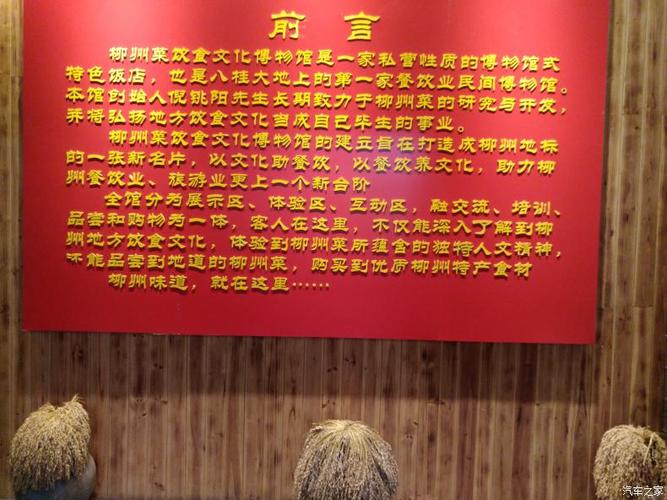 前 言
柳州菜饮食文化博物馆是一家私营性质的博物馆式
特色饭店，也是八桂大地上的第一家餐饮业民间博物馆。
本馆创始人倪铫阳先生长期致力于柳州菜的研究与开发，
并将弘扬地方饮食文化当成自己毕生的事业。
柳州菜饮食文化博物馆的建立旨在打造成柳州地标
的一张新名片，以文化助餐饮，以餐饮养文化，助力柳
州餐饮业、旅游业更上一个新台阶
全馆分为展示区、体验区、互动区，融交流、培训、
品尝和购物为一体，客人在这里，不仅能深入了解到柳
州地方饮食文化，体验到柳州菜所蕴含的独特人文精神，
还能品尝到地道的柳州菜，购买到优质柳州特产食材
柳州味道，就在这里……
汽车之家